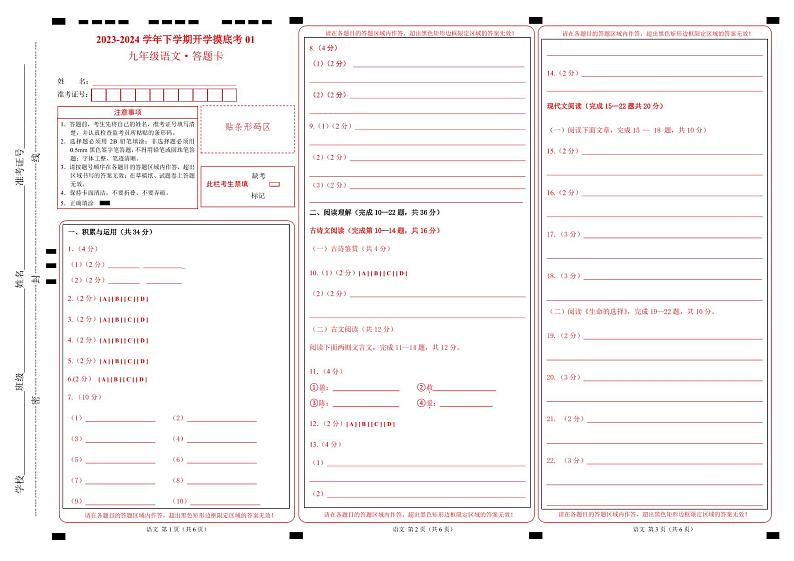 2023-2024 学年下学期开学摸底考 01
九年级语文·答题卡
姓 名:
准考证号:
注意事项
1. 答题前,考生先将自己的姓名,准考证号填写清
楚,并认真检查监考员所粘贴的条形码。
2. 选择题必须用 2B 铅笔填涂;非选择题必须用
0.5mm 黑色签字笔答题,不得用铅笔或圆珠笔答
题;字体工整、笔迹清晰。
3. 请按题号顺序在各题目的答题区域内作答,超出
区域书写的答案无效;在草稿纸、试题卷上答题
无效。
4. 保持卡面清洁,不要折叠、不要弄破。
5. 正确填涂
贴条形码区
此栏考生禁填
缺考
标记
学校
班级
姓名
准考证号
密
封
线
一、积累与运用(共 34 分)
1.(4 分)
(1)(2 分)
(2)(2 分)
2.(2 分) [A] [B] [C] [D]
3.(2 分) [A] [B] [C] [D]
4.(2 分) [A] [B] [C] [D]
5.(2 分) [A] [B] [C] [D]
6.(2 分) [A] [B] [C] [D]
7.(10 分)
(1) (2)
(3) (4)
(5) (6)
(7) (8)
(9) (10)
请在各题目的答题区域内作答,超出黑色矩形边框限定区域的答案无效!
语文 第 1 页(共 6 页)
请在各题目的答题区域内作答,超出黑色矩形边框限定区域的答案无效!
8.(4 分)
(1)(2 分)
(2)(2 分)
9.(1)(2 分)
(2)(2 分)
(3)(2 分)
二、阅读理解(完成 10—22 题,共 36 分)
古诗文阅读(完成第 10—14 题,共 16 分)
(一)古诗鉴赏(共 4 分)
10.(1)(2 分) [A] [B] [C] [D]
(2)(2 分)
(二)古文阅读(共 12 分)
阅读下面两则文言文,完成 11—14 题,共 12 分。
11.(4 分)
12.(2 分) [A] [B] [C] [D]
13.(4 分)
(1)
(2)
请在各题目的答题区域内作答,超出黑色矩形边框限定区域的答案无效!
语文 第 2 页(共 6 页)
请在各题目的答题区域内作答,超出黑色矩形边框限定区域的答案无效!
14.(2 分)
现代文阅读(完成 15—22 题共 20 分)
(一)阅读下面文章,完成 15 — 18 题,共 10 分)
15.(2 分)
16.(2 分)
17.(3 分)
18.(3 分)
(二)阅读《生命的选择》,完成 19—22 题,共 10 分。
19.(2 分)
20.(3 分)
21. (2 分)
22. (3 分)
请在各题目的答题区域内作答,超出黑色矩形边框限定区域的答案无效!
语文 第 3 页(共 6 页)